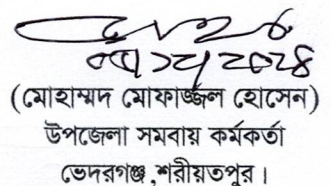 (মোহাম্মদ মোফাজ্জল হোসেন)
উপজেলা সমবায় কর্মকর্তা
ভেদরগঞ্জ ,শরীয়তপুর।